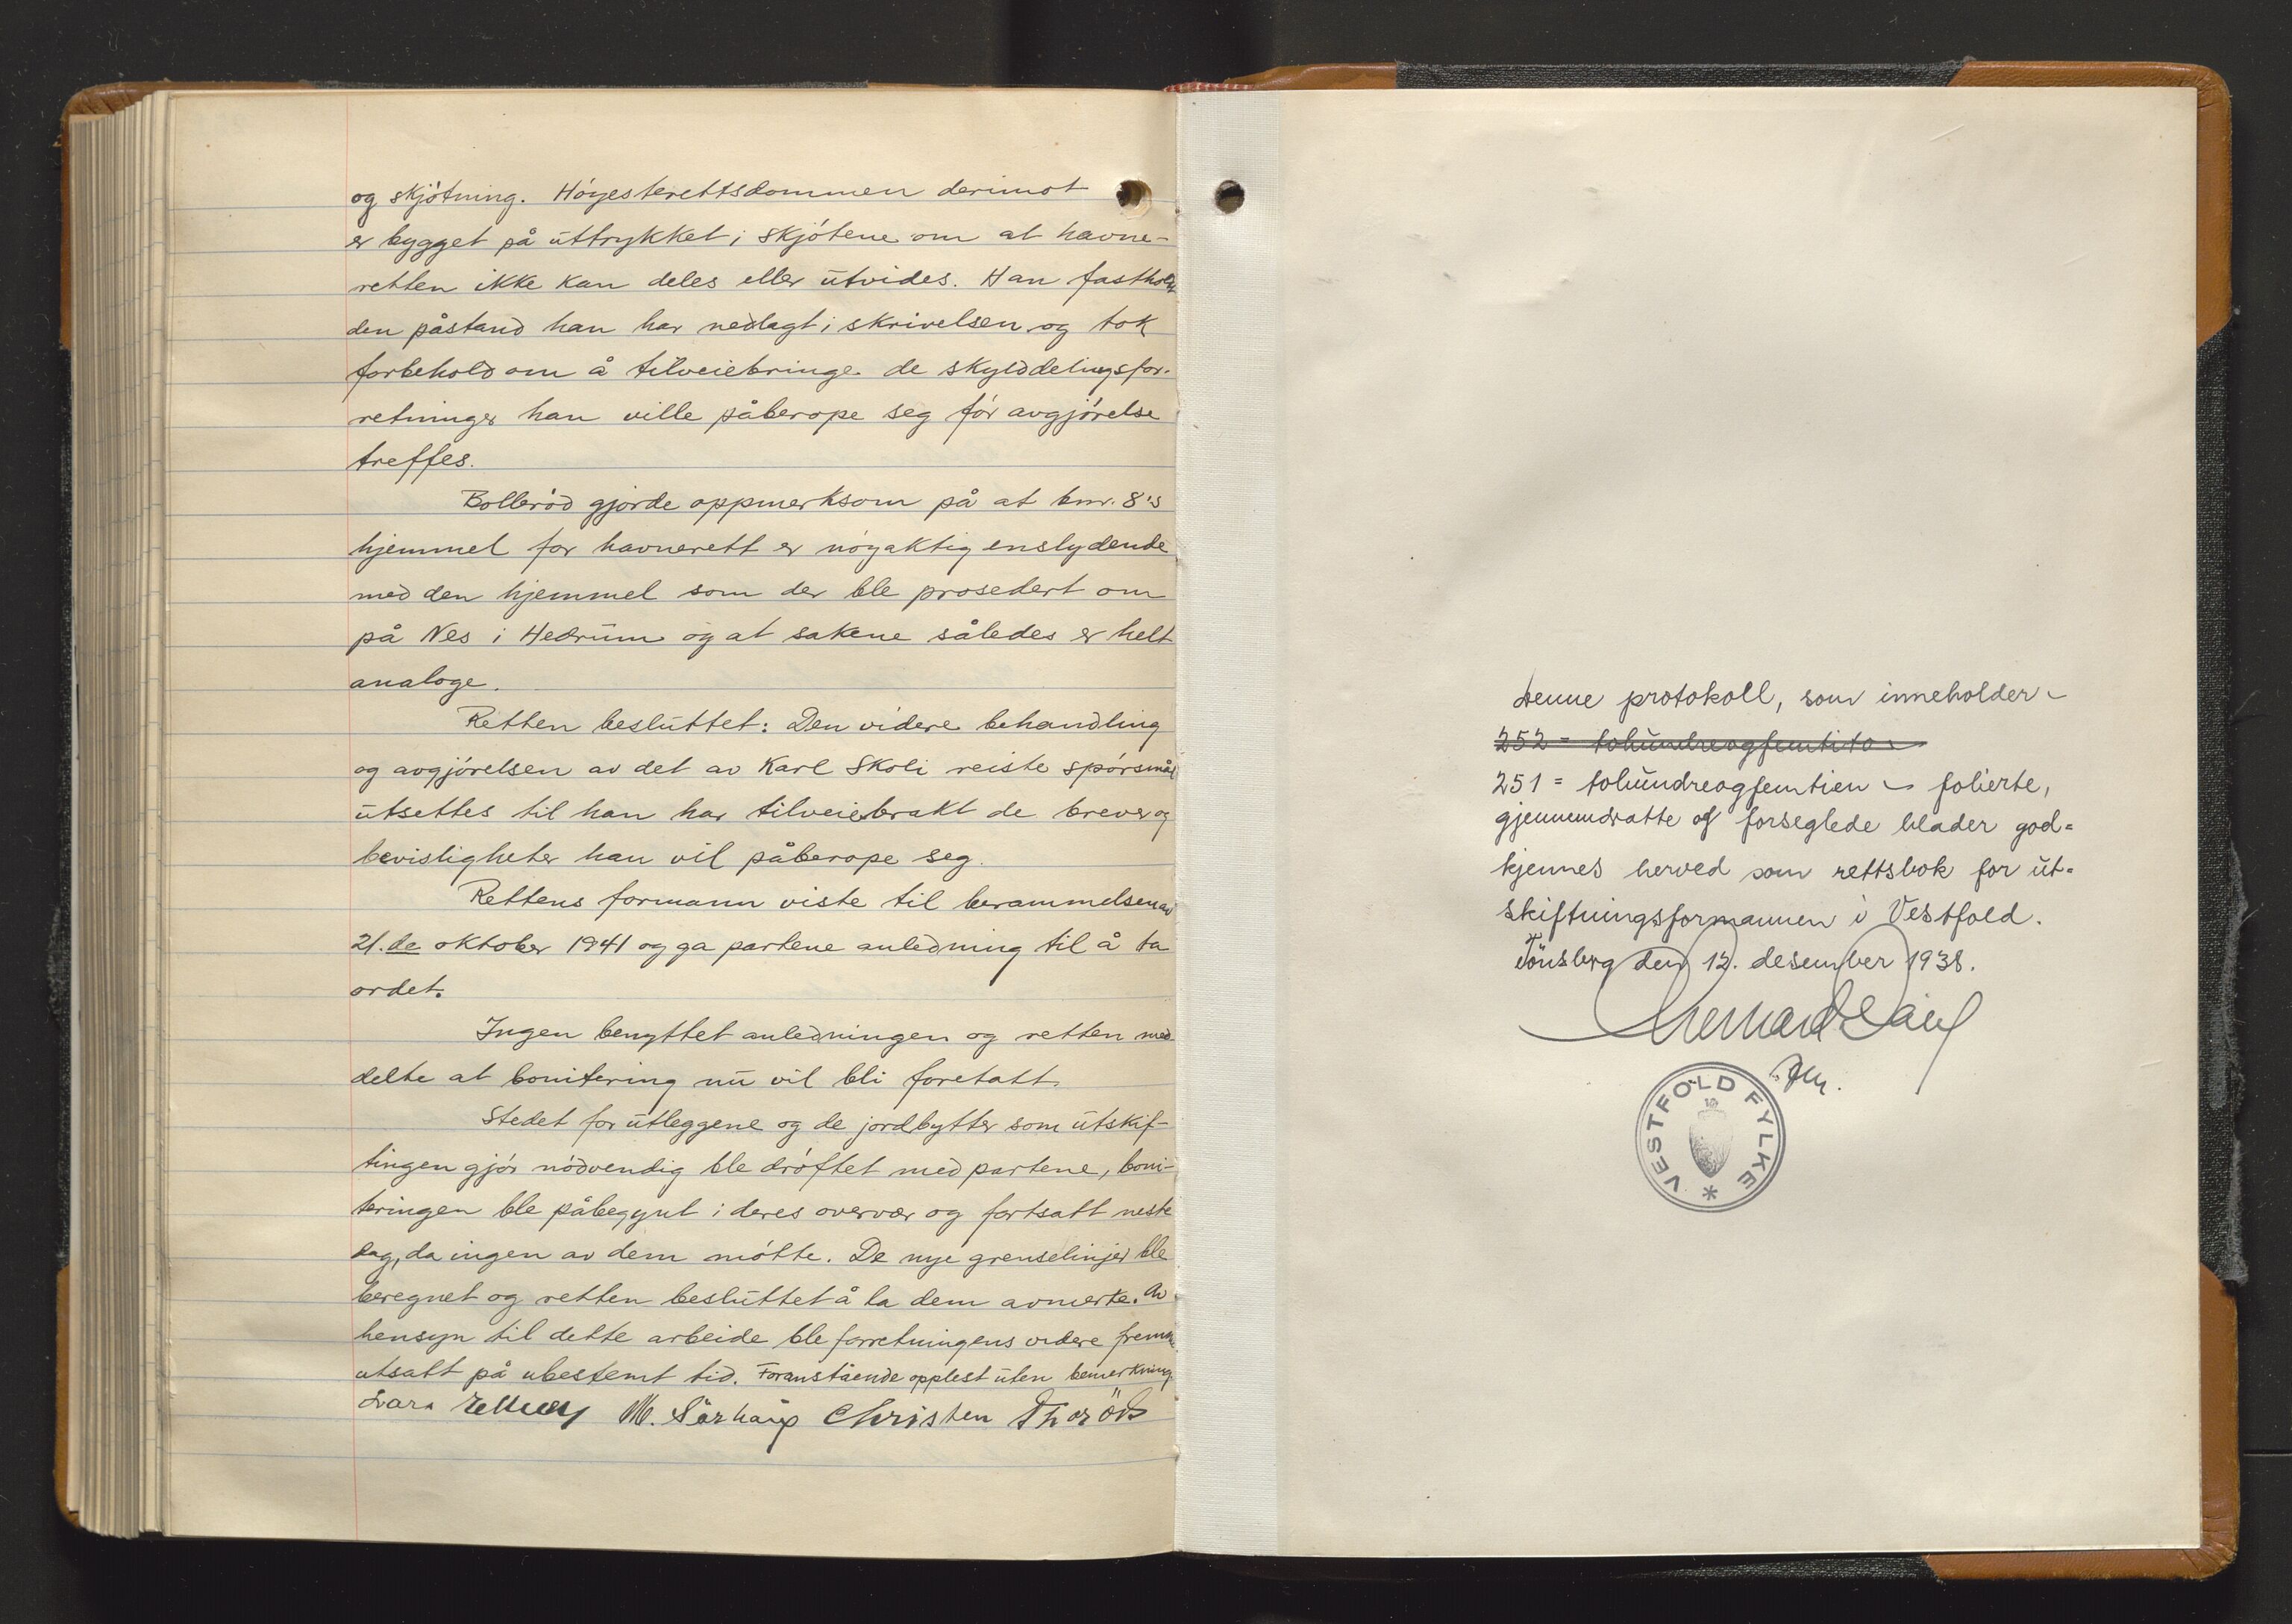 og skjøtning. Høyesterettsdommen derimot
er bygget på uttrykket i skjøtene om at havne-
retten ikke kan deles eller utvides. Han fastholdt
den påstand han har nedlagt i skrivelsen og tok
forbehold om å tilveiebringe de skylddelingsfor-
retninger han ville påberope seg før avgjørelse
treffes.
Bollerød gjorde oppmerksom på at bnr. 8's
hjemmel for havnerett er nøyaktig enslydende
med den hjemmel som der ble prosedert om
på Nes i Hedrum og at sakene således er helt
analoge.
Retten besluttet: Den videre behandling
og avgjørelsen av det av Karl Skoli reiste spørsmål
utsettes til han har tilveiebrakt de brever og
bevisligheter han vil påberope seg.
Rettens formann viste til berammelsen av
21. de oktober 1941 og ga partene anledning til å ta
ordet.
Ingen benyttet anledningen og retten med-
delte at bonitering nu vil bli foretatt.
Stedet for utleggene og de jordbytter som utskif-
tingen gjør nødvendig ble drøftet med partene, boni-
teringen ble påbegynt i deres overvær og fortsatt neste
dag, da ingen av dem møtte. De nye grenselinjer ble
beregnet og retten besluttet å la dem avmerke. Av
hensyn til dette arbeide ble forretningens videre fremme
utsatt på ubestemt tid. Foranstående opplest uten bemerkning.
Lars M. Sørhaug Christen Thorød
Denne protokoll, som inneholder
252 = tohundreogfemtito
251 = tohundreogfemtien folierte,
gjennemdratte og forseglede blader god=
kjennes herved som rettsbok for ut=
skiftningsformannen i Vestfold.
Tønsberg den 12. desember 1938.
VESTFOLD FYLKE *